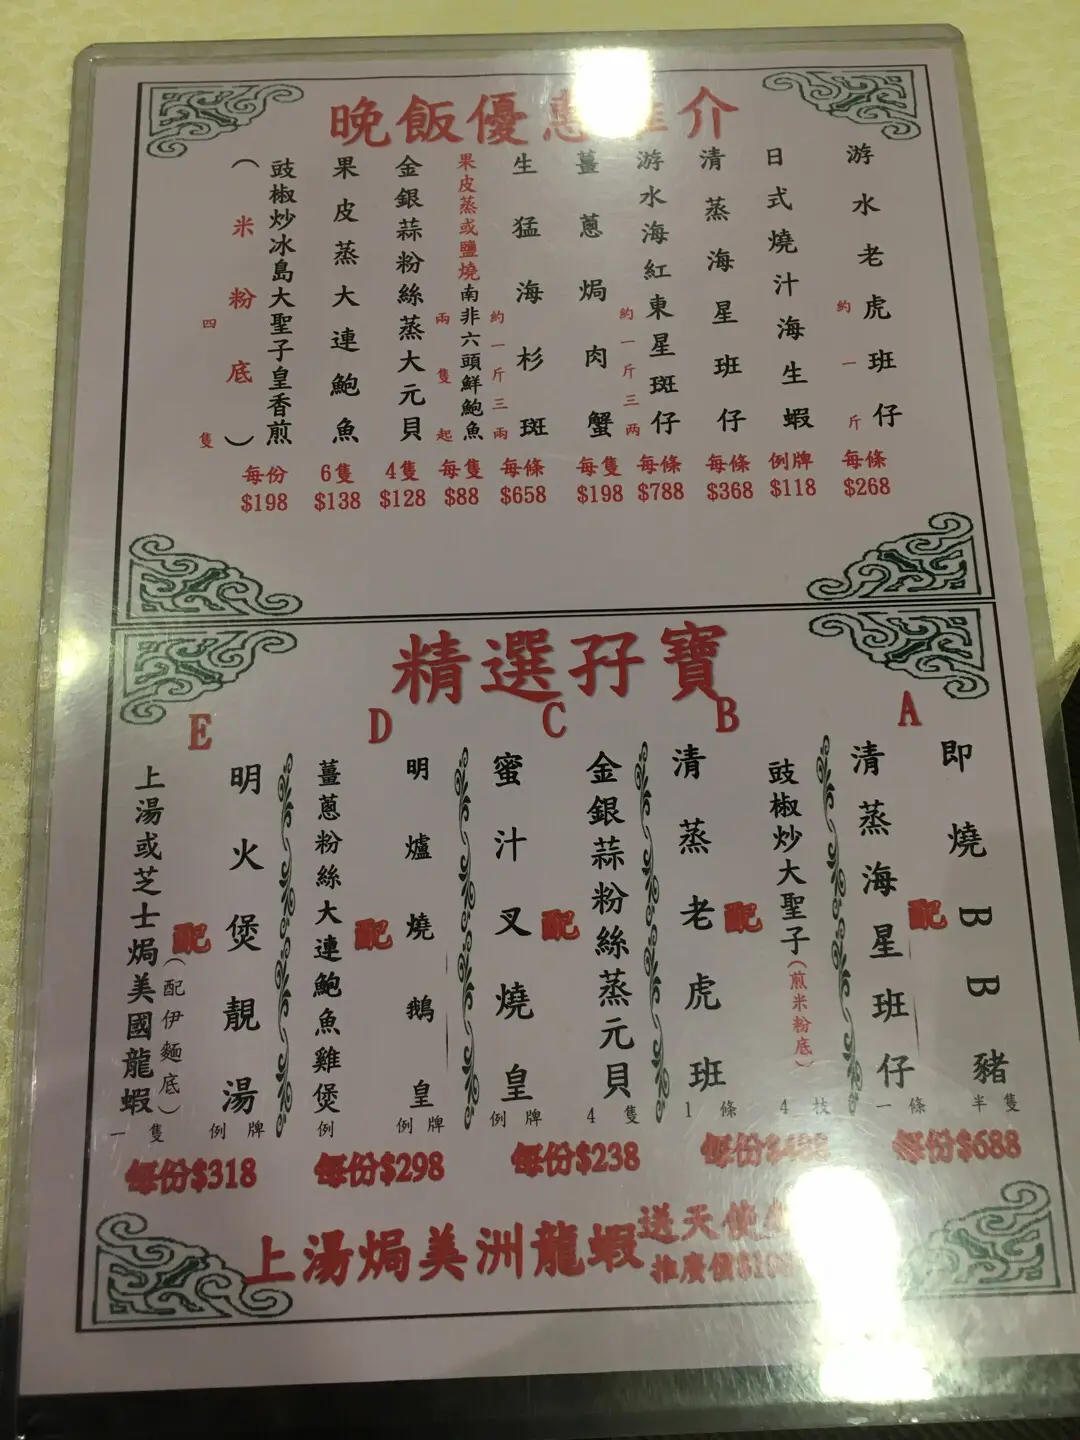 晚飯優惠推介
游水老虎班仔
約一斤
每條
$268
日式燒汁海生蝦
例牌
$118
清蒸海星班仔
每條
$368
游水海紅東星斑仔
約一斤三两
每條
$788
薑蔥焗肉蟹
每隻
$198
生猛海杉斑
約一斤三兩
每條
$658
果皮蒸或鹽燒南非六頭鮮鮑魚
兩隻起
每隻
$88
金銀蒜粉絲蒸大元貝
4隻
$128
果皮蒸大連鮑魚
6隻
$138
豉椒炒冰島大聖子皇香煎
(米粉底)
四隻
每份
$198
精選孖寶
A
即燒BB豬
半隻
配
清蒸海星班仔
一條
每份$688
B
豉椒炒大聖子(煎米粉底)
4枝
配
清蒸老虎班
1條
每份
C
金銀蒜粉絲蒸元貝
4隻
配
蜜汁叉燒皇
例牌
每份$238
D
明爐燒鵝皇
例牌
配
薑蔥粉絲大連鮑魚雞煲
例
每份$298
E
明火煲靚湯
例牌
配
上湯或芝士焗美國龍蝦
(配伊麵底)
一隻
每份$318
上湯焗美洲龍蝦
送天使
推廣價